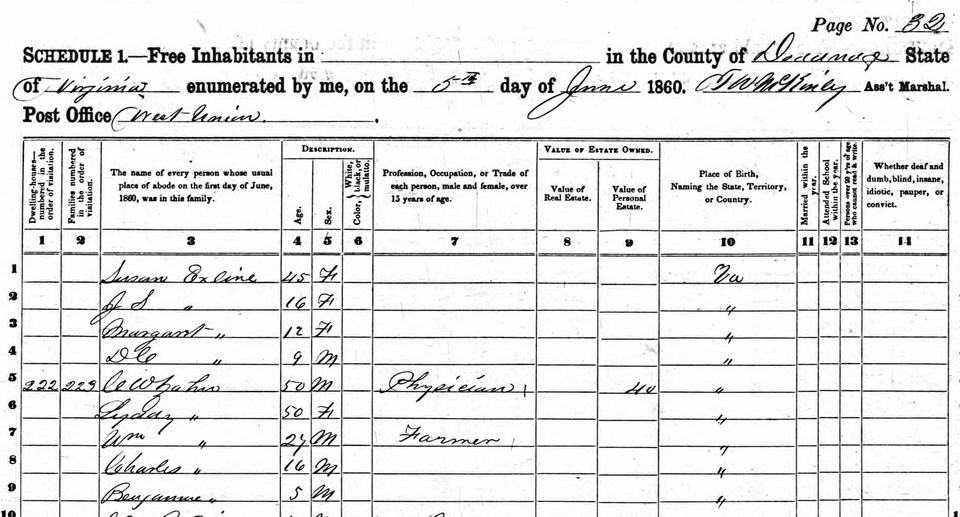 Page No. 32
SCHEDULE 1.—Free Inhabitants in in the County of Doddridge State
of Virginia enumerated by me, on the 5th day of June 1860. Ass't Marshal.
Post Office West Union.
DESCRIPTION. VALUE OF ESTATE OWNED.
Dwelling-houses—numbered in the order of visitation. Families numbered in the order of visitation. The name of every person whose usual place of abode on the first day of June, 1860, was in this family. Age. Sex. Color, White, black, or mulatto. Profession, Occupation, or Trade of each person, male and female, over 15 years of age. Value of Real Estate. Value of Personal Estate. Place of Birth, Naming the State, Territory, or Country. Married within the year. Attended School within the year. Persons over 20 y'rs of age who cannot read & write. Whether deaf and dumb, blind, insane, idiotic, pauper, or convict.
1 2 3 4 5 6 7 8 9 10 11 12 13 14
1 Susan Exline 45 F Va
2 J S " 16 F "
3 Margaret " 12 F "
4 " 9 M "
5 222 223 50 M Physician 40 "
6 Lyddy " 50 F "
7 Wm " 27 M Farmer "
8 Charles " 16 M "
9 " 5 M "
10